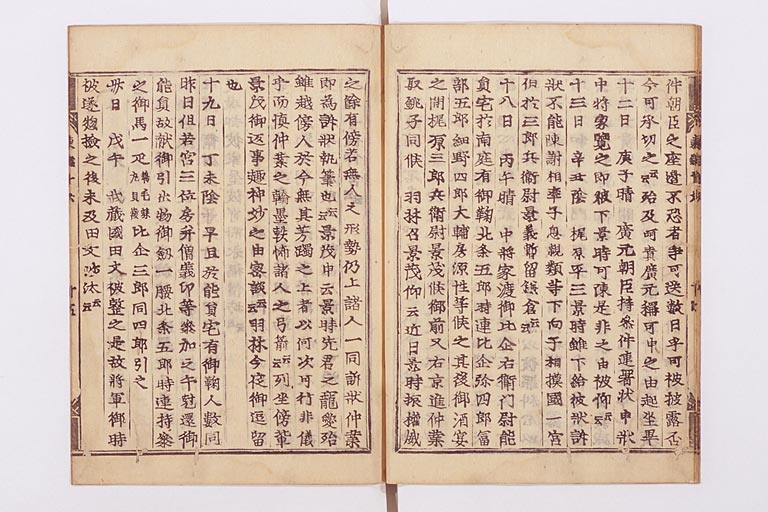 件朝臣之座邊不忍者争可送数日乎可被披露否
今可承切之云云殆及呵責廣元稱可申之由起坐畢
十二日　庚子晴　廣元朝臣持参件連署状申状
中将家覽之即被下景時可陳是非之由被仰云云
十三日　辛丑陰　梶原平三景時雖下給彼訴
状不能陳謝相率子息親類等下向于相摸國一宮
但於三郎兵衛尉景茂暫留鎌倉云云
十八日　丙午晴　中将家渡御比企右衛門尉能
員宅於南庭有御鞠北条五郎時連比企弥四郎冨
部五郎細野四郎大輔房源性等候之其後御酒宴
之間梶原三郎兵衛尉景茂候御前又右京進仲業
取銚子同候　羽林召景茂仰云近日景時振權威
之餘有傍若無人之形勢仍上諸人一同訴状仲業
即為訴状執筆也云云景茂申云景時先君之寵愛殆
雖越傍人於今無其芳躅之上者以何次可行非儀
乎而慎仲業之翰墨軼怖諸人之弓箭云云列坐傍輩
景茂御返事趣神妙之由密談云云羽林今夜御逗留
也
十九日　丁未陰　早旦於能員宅有御鞠人数同
昨日但若宮三位房并僧義印等参加之午尅還御
能員故献御引出物御劔一腰北条五郎時連持参
之御馬一疋　比企三郎同四郎引之
卅日　戊午　武蔵國田文被整之是故将軍御時
被遂惣撿之後未及田文沙汰云云